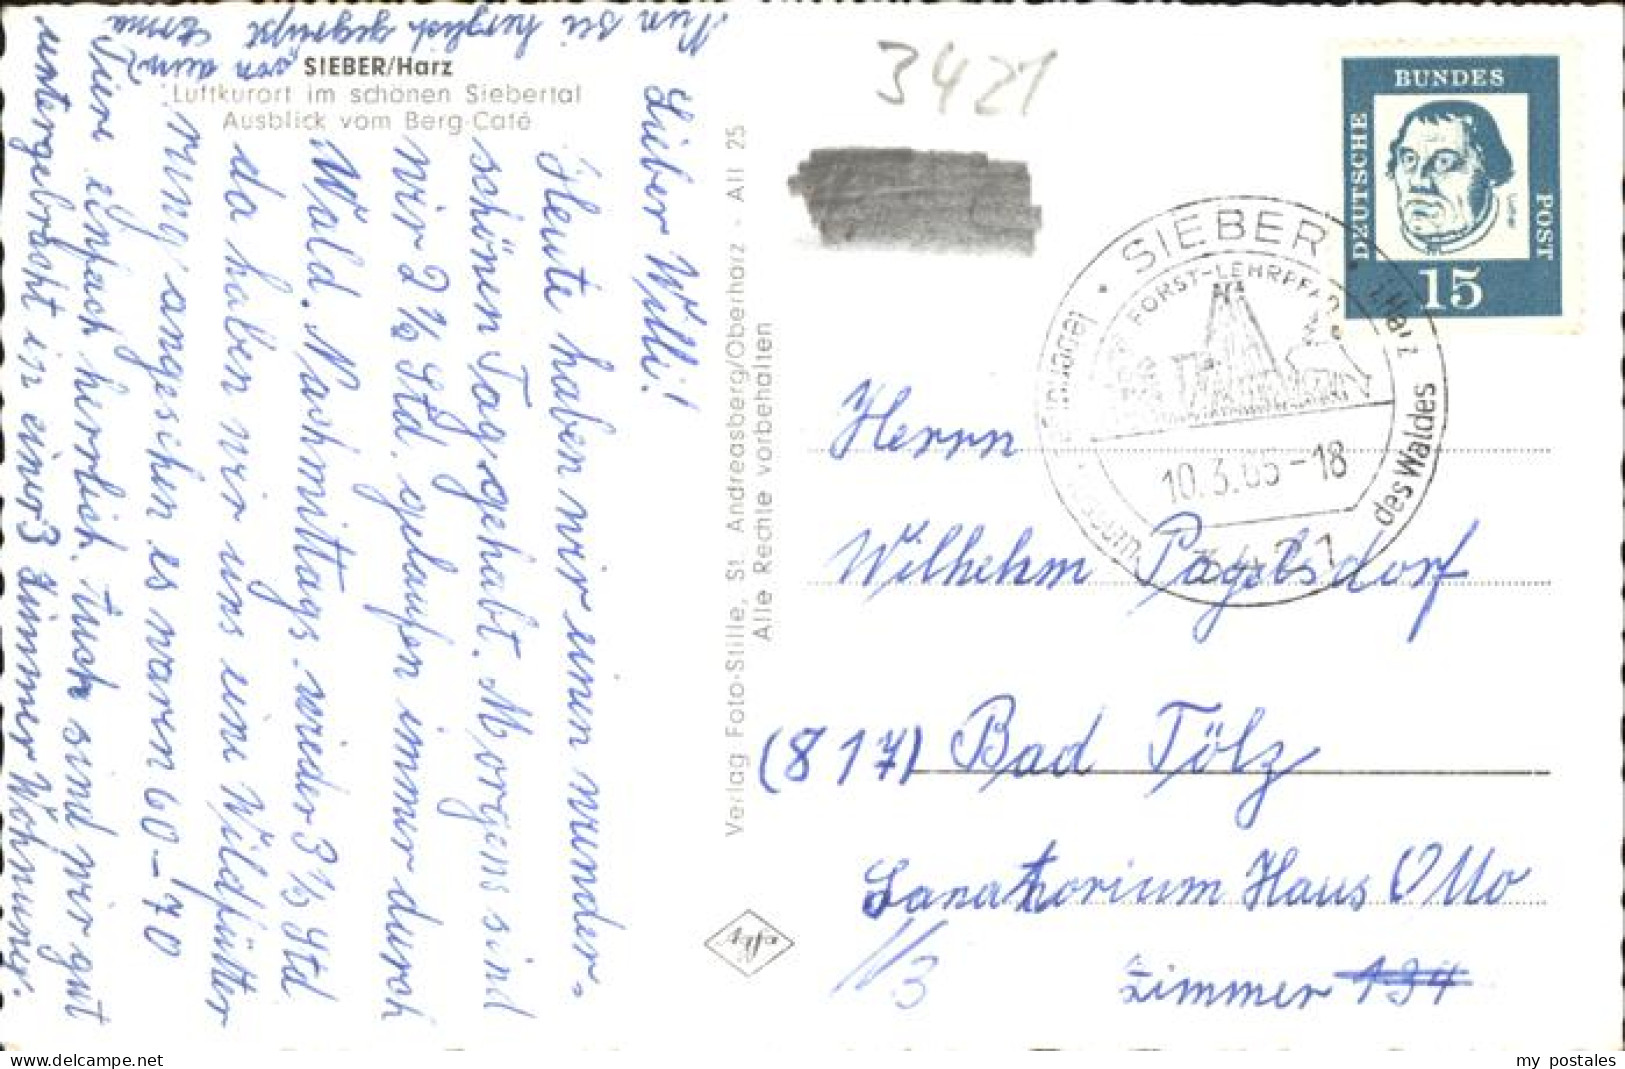 SIEBER/Harz
Luftkurort im schönen Siebertal
Ausblick vom Berg-Café
Lieber Willi!
Heute haben wir einen wunder-
schönen Tag gehabt. Morgens sind
wir 2 ½ Std. gelaufen immer durch
Wald. Nachmittags wieder 3 ½ Std
da haben wir uns eine Wildfütter
rung angesehen es waren 60-70
Tiere einfach herrlich. Auch sind wir gut
untergebracht in einer 3 Zimmer Wohnung.
Nun sei herzlich gegrüßt
von deiner Erna
Verlag Foto-Stille, St. Andreasberg/Oberharz - All 25
Alle Rechte vorbehalten
Agfa
3421
DEUTSCHE
BUNDES
POST
15
SIEBER (Harz)
FORST-LEHRPFAD
10.3.65-18
des Waldes
3421
Herrn
Wilhelm Pagelsdorf
(817) Bad Tölz
Sanatorium Haus Otto
Zimmer 134
1/3
my postales